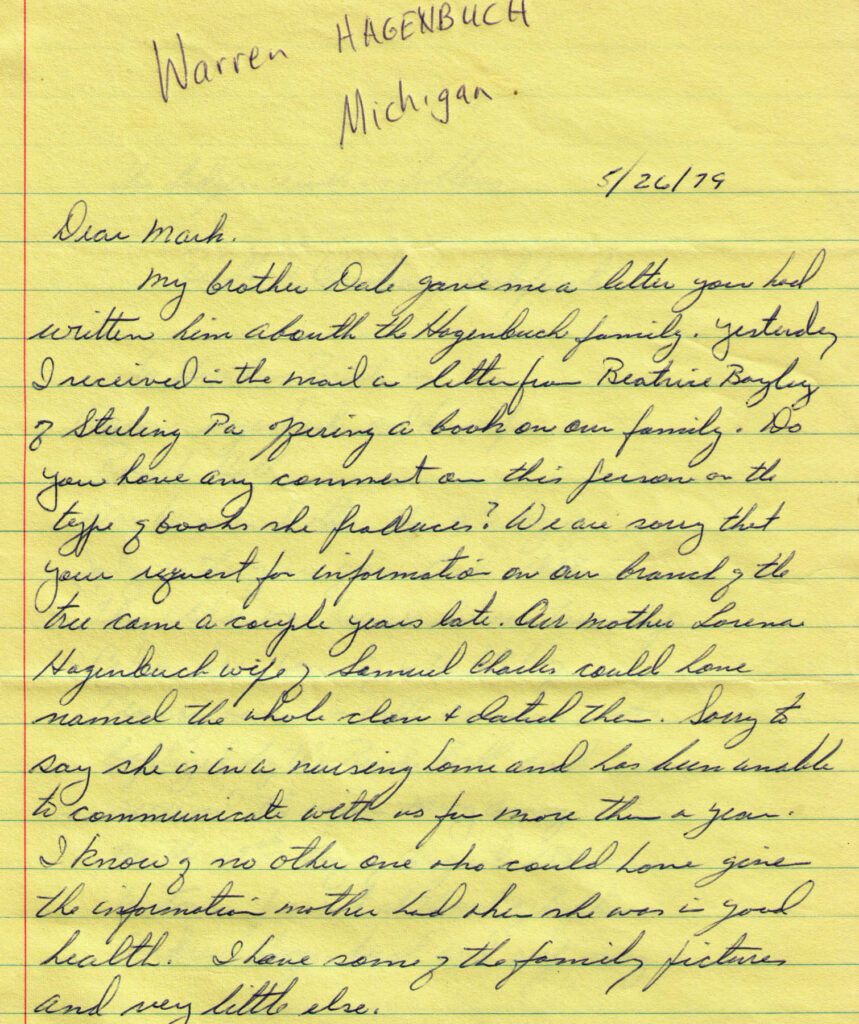 Warren HAGENBUCH
Michigan.
5/26/79
Dear Mark.
My brother Dale gave me a letter you had
written him abouth the Hagenbuch family. Yesterday
I received in the mail a letter from Beatrice Bayley
of Sterling Pa offering a book on our family. Do
you have any comment on this person or the
type of books she produces? We are sorry that
your request for information on our branch of the
tree came a couple years late. Our mother Lorena
Hagenbuch wife of Samuel Charles could have
named the whole clan & dated them. Sorry to
say she is in a nursing home and has been unable
to communicate with us for more then a year.
I know of no other one who could have given
the information mother had when she was in good
health. I have some of the family pictures
and very little else.